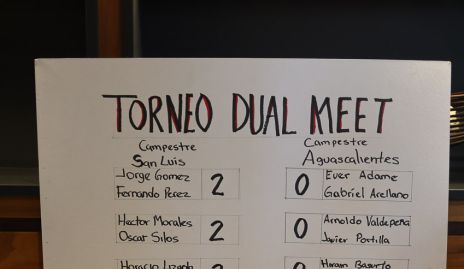 TORNEO DUAL MEET
Campestre
San Luis
Campestre
Aguascalientes
Jorge Gomez
Fernando Perez
2
0
Ever Adame
Gabriel Arellano
Hector Morales
Oscar Silos
2
0
Arnoldo Valdepeña
Javier Portilla
Horacio
2
0
Hiram